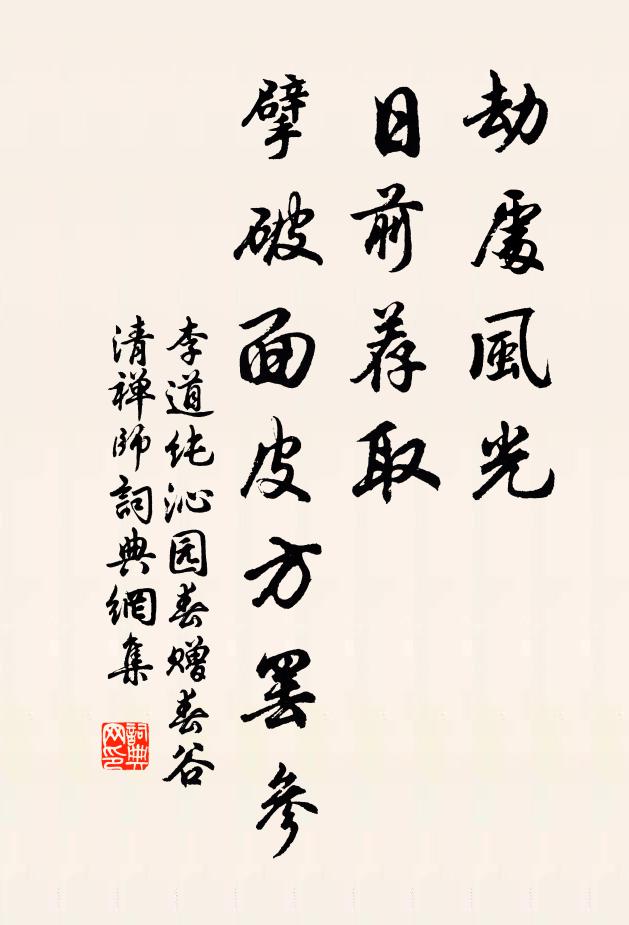 劫處風光
日前荐取
擘破面皮方罢參
李道纯沁园春赠春谷
清禅师詞典網集
詞典
网印